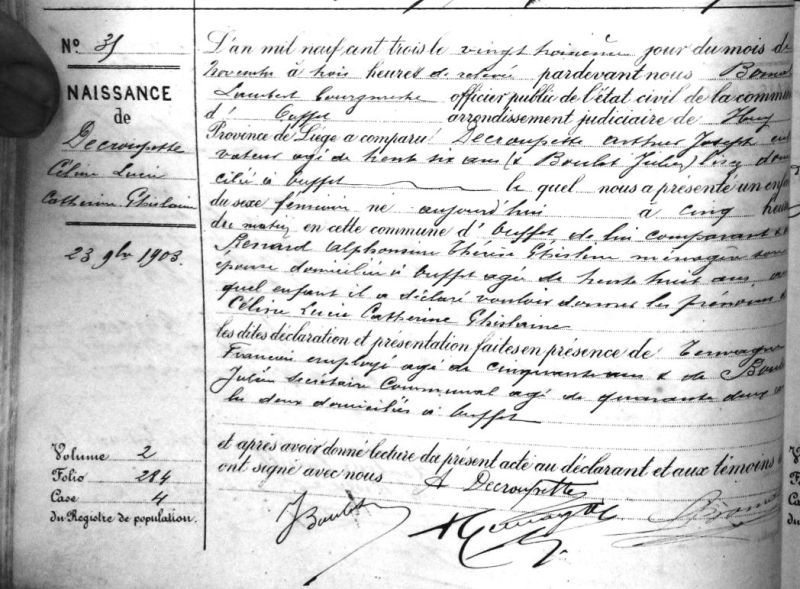 N° 35
NAISSANCE
de
Decroupette
Céline Lucie
Catherine Ghislaine
23 9bre 1903.
Volume 2
Folio 284
Case 4
du Registre de population.
L'an mil neuf cent trois le vingt troisième jour du mois de
Novembre à trois heures de relevée pardevant nous
Lambert bourgmestre officier public de l'état civil de la commune
d' Ouffet arrondissement judiciaire de Huy
Province de Liège a comparu Decroupette Arthur Joseph
agé de trente six ans
cilié à Ouffet le quel nous a présenté un enfant
du sexe féminin né aujourd'hui à cinq heures
du matin en cette commune d'Ouffet, de lui comparant &
Renard Alphonsine Thérèse Ghislaine ménagère son
épouse domiciliée à Ouffet agée de trente huit ans,
quel enfant il a déclaré vouloir donner les prénoms
Céline Lucie Catherine Ghislaine
les dites déclaration et présentation faites en présence de
François employé agé de cinquante ans & de Boulet
Julien Secrétaire Communal agé de quarante deux
les deux domiciliés à Ouffet
et après avoir donné lecture du présent acte au déclarant et aux témoins
ont signé avec nous
A Decroupette
J Boulet